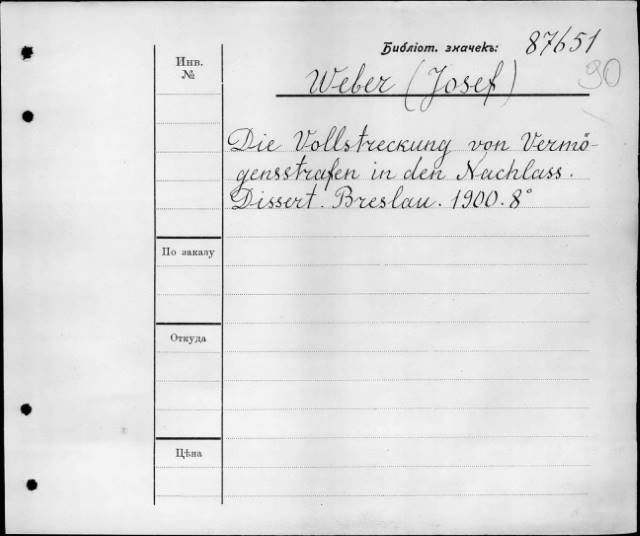 Библіот. значекъ: 87651
90
Инв.
№
Weber (Josef)
Die Vollstreckung von Vermö-
gensstrafen in den Nachlass.
Dissert. Breslau. 1900. 8°
По заказу
Откуда
Цѣна